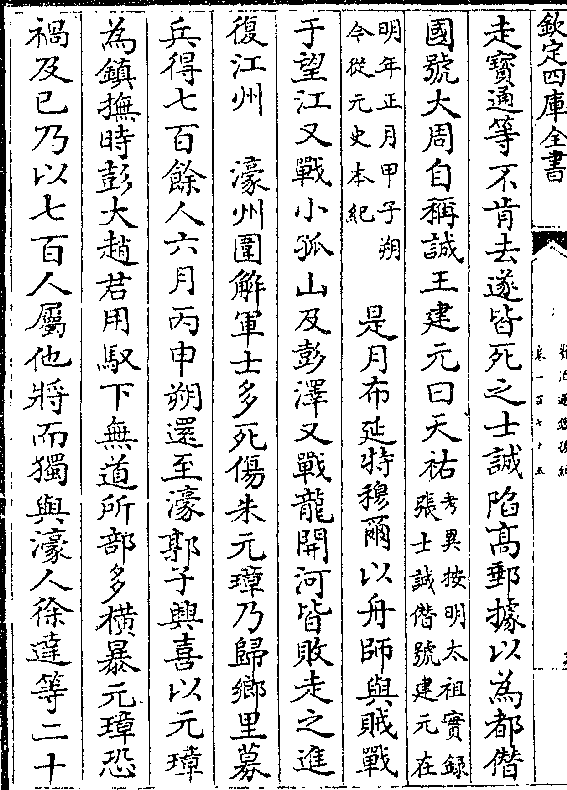 欽定四庫全書
走寳通等不肯去遂皆死之士誠陷髙郵據以為都僭
國號大周自稱誠王建元曰天祐考異按明太祖實録
張士誠僭號建元在
明年正月甲子朔
今從元史本紀
是月布延特穆爾以舟師與賊戰
于望江又戰小孤山及彭澤又戰龍開河皆敗走之進
復江州　濠州圍解軍士多死傷朱元璋乃歸鄉里募
兵得七百餘人六月丙申朔還至濠郭子興喜以元璋
為鎮撫時彭大趙君用馭下無道所部多横暴元璋恐
禍及已乃以七百人屬他將而獨與濠人徐達等二十